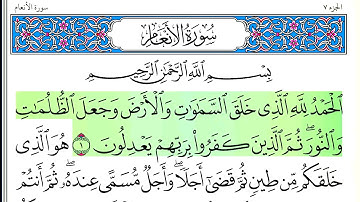 الجزء ٧
سورة الأنعام
سُورَةُ الأَنْعَامِ
بِسْمِ اللَّهِ الرَّحْمَٰنِ الرَّحِيمِ
الْحَمْدُ لِلَّهِ الَّذِي خَلَقَ السَّمَٰوَٰتِ وَالْأَرْضَ وَجَعَلَ الظُّلُمَٰتِ
وَالنُّورَ ۖ ثُمَّ الَّذِينَ كَفَرُوا بِرَبِّهِمْ يَعْدِلُونَ ١ هُوَ الَّذِي
خَلَقَكُم مِّن طِينٍ ثُمَّ قَضَىٰ أَجَلًا ۖ وَأَجَلٌ مُّسَمًّى عِندَهُ ۖ ثُمَّ أَنتُمْ